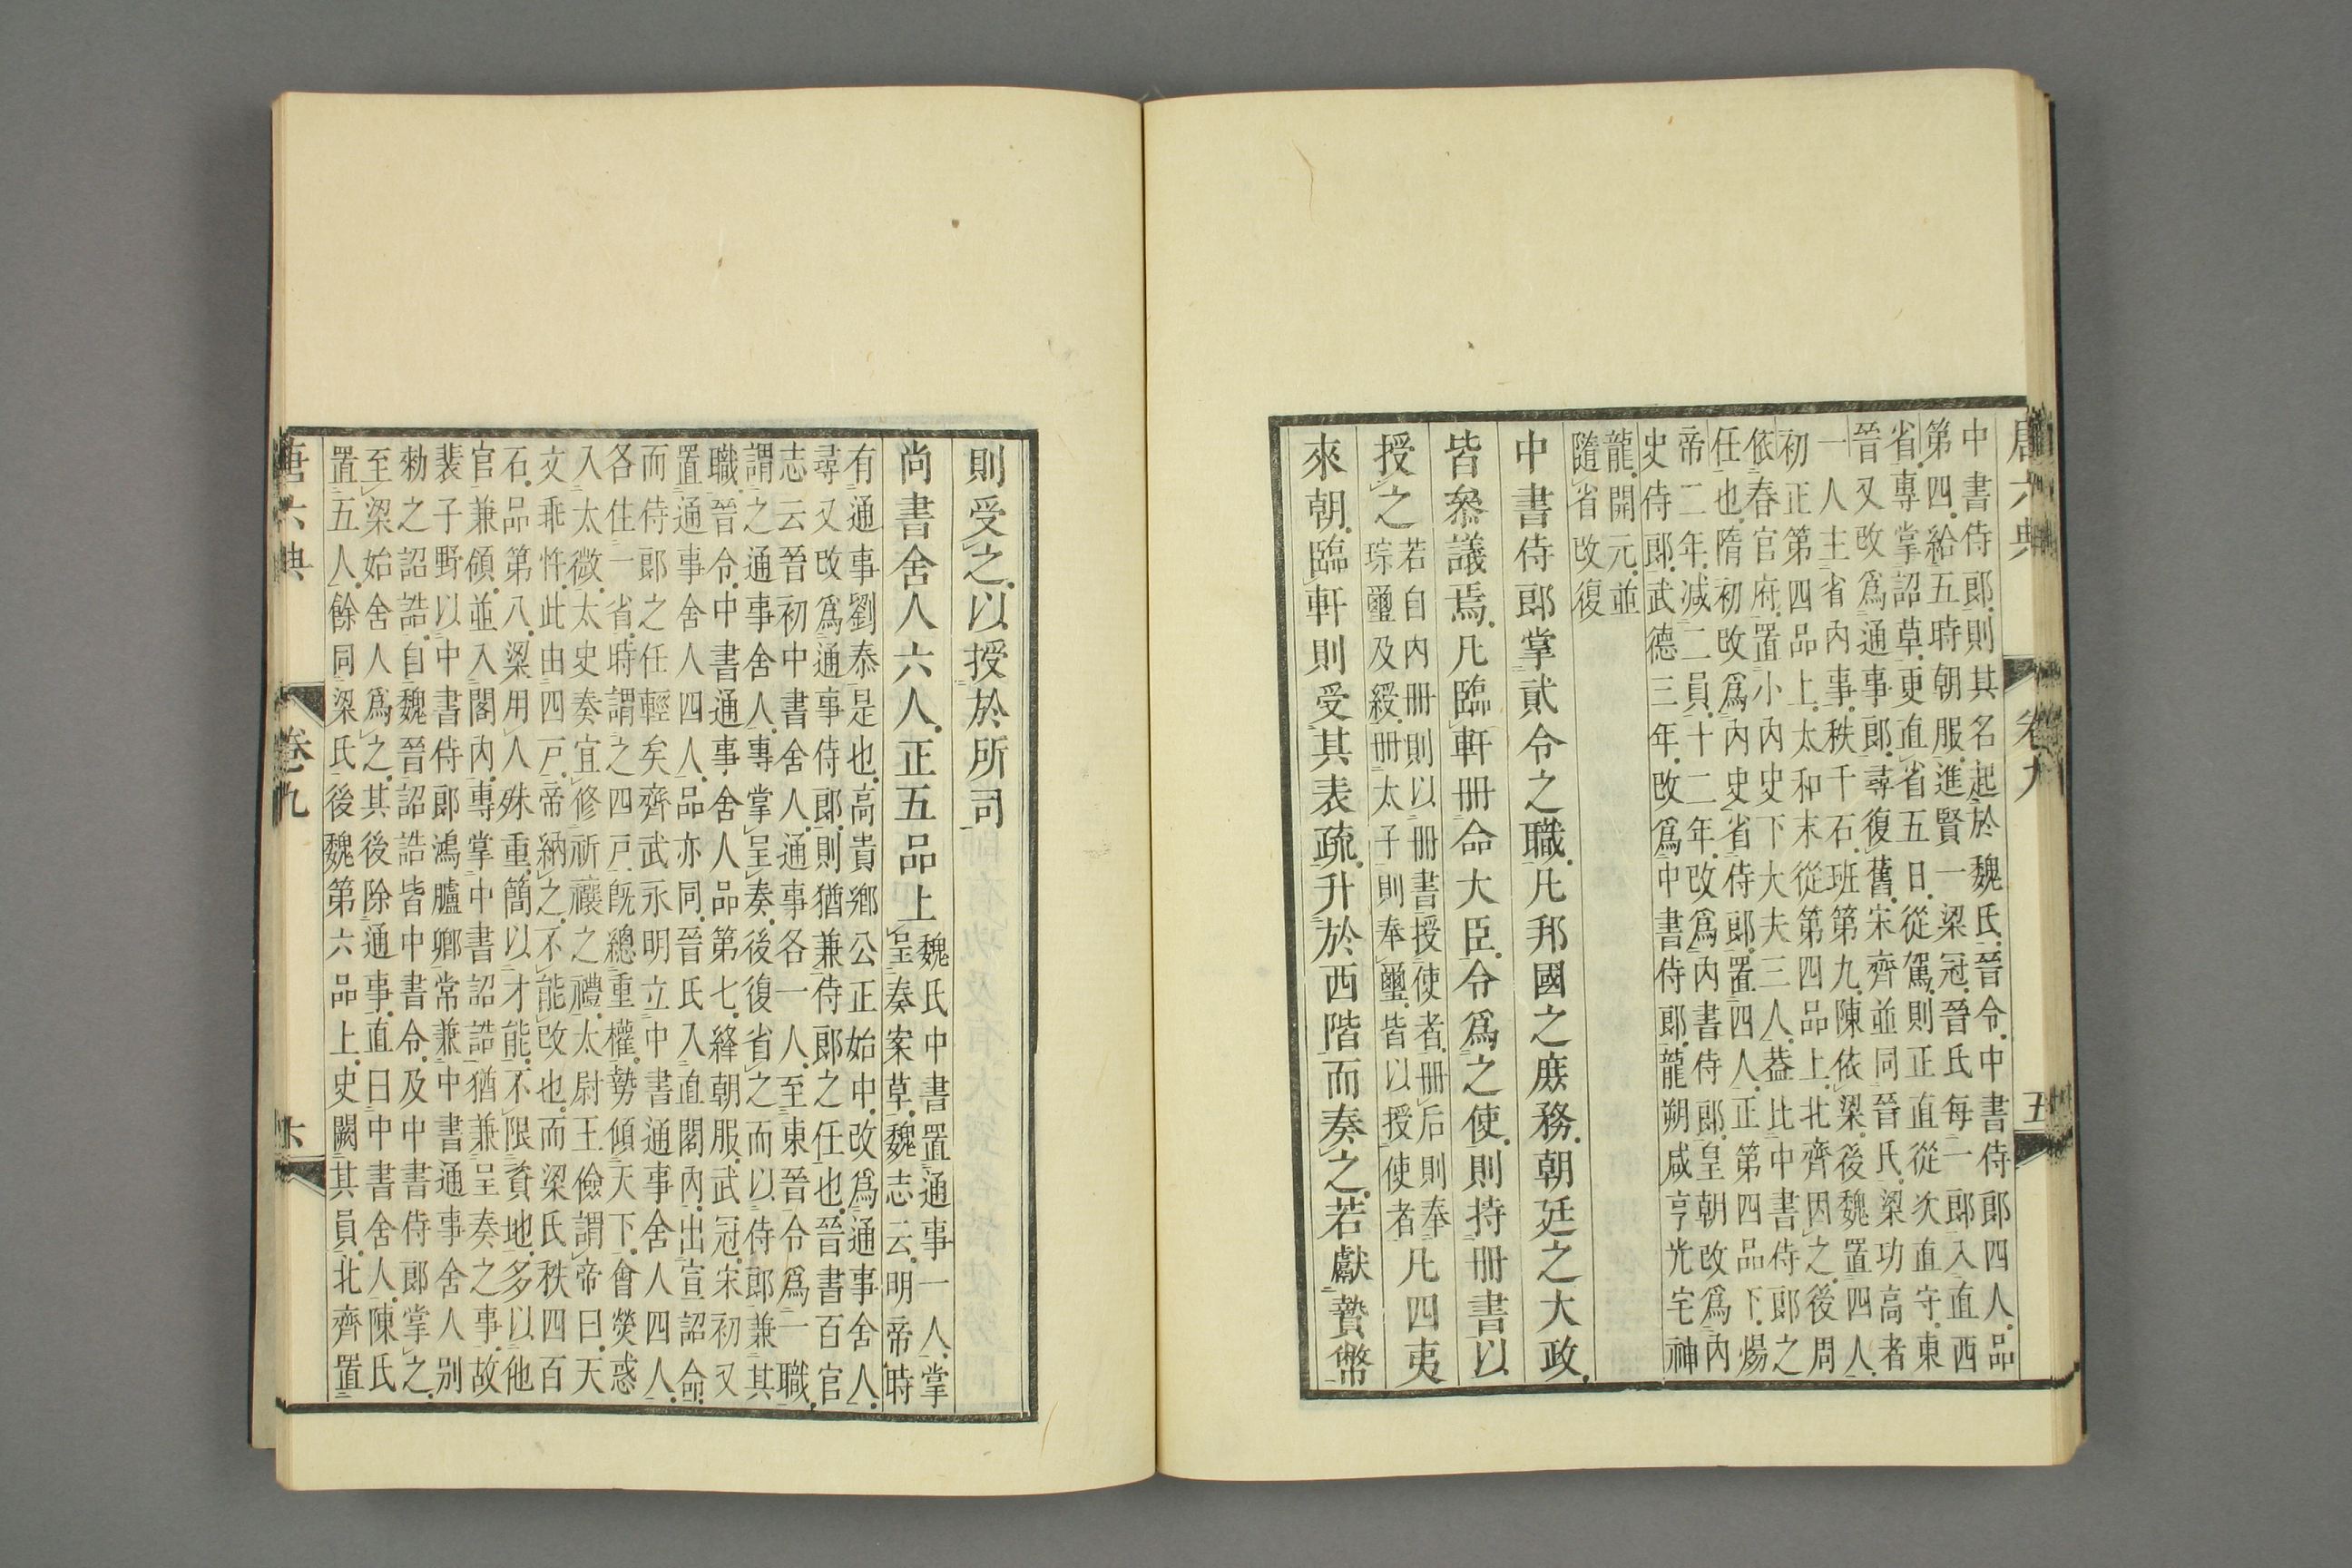 唐六典 卷九 五
中書侍郎則其名起於魏氏晉令中書侍郎四人品
第四給五時朝服進賢一梁冠晉氏每一郎入直西
省專掌詔草更直省五日從駕則正直從次直守東
晉又改爲通事郎尋復舊宋齊並同晉氏梁功高者
一人主省內事秩千石班第九陳依梁後魏置四人
初正第四品上太和末從第四品上北齊因之後周
依春官府置小內史下大夫三人葢比中書侍郎之
任也隋初改爲內史省侍郎置四人正第四品下煬
帝二年減二員十二年改爲內書侍郎皇朝改爲內
史侍郎武德三年改爲中書侍郎龍朔咸亨光宅神
龍開元並
隨省改復
中書侍郎掌貳令之職凡邦國之庶務朝廷之大政
皆叅議焉凡臨軒冊命大臣令爲之使則持冊書以
授之若自內冊則以冊書授使者冊后則奉
琮璽及綬冊太子則奉璽皆以授使者凡四夷
來朝臨軒則受其表疏升於西階而奏之若獻贄幣
則受之以授於所司
尚書舍人六人正五品上魏氏中書置通事一人掌
呈奏案草魏志云明帝時
有通事劉泰是也高貴鄉公正始中改爲通事舍人
尋又改爲通事侍郎則猶兼侍郎之任也晉書百官
志云晉初中書舍人通事各一人至東晉令爲一職
謂之通事舍人專掌呈奏後復省之而以侍郎兼其
職晉令中書通事舍人品第七絳朝服武冠宋初又
置通事舍人四人品亦同晉氏入直閣內出宣詔命
而侍郎之任輕矣齊武永明立中書通事舍人四人
各住一省時謂之四戶旣總重權勢傾天下會熒惑
入太微太史奏宜修祈禳之禮太尉王儉謂帝曰天
文乖忤此由四戶帝納之不能改也而梁氏秩四百
石品第八梁用人殊重簡以才能不限資地多以他
官兼領並入閣內專掌中書詔誥猶兼呈奏之事故
裴子野以中書侍郎鴻臚卿常兼中書通事舍人别
勑之詔誥自魏晉詔誥皆中書令及中書侍郎掌之
至梁始舍人爲之其後除通事直曰中書舍人陳氏
置五人餘同梁氏後魏第六品上史闕其員北齊置
唐六典 卷九 六